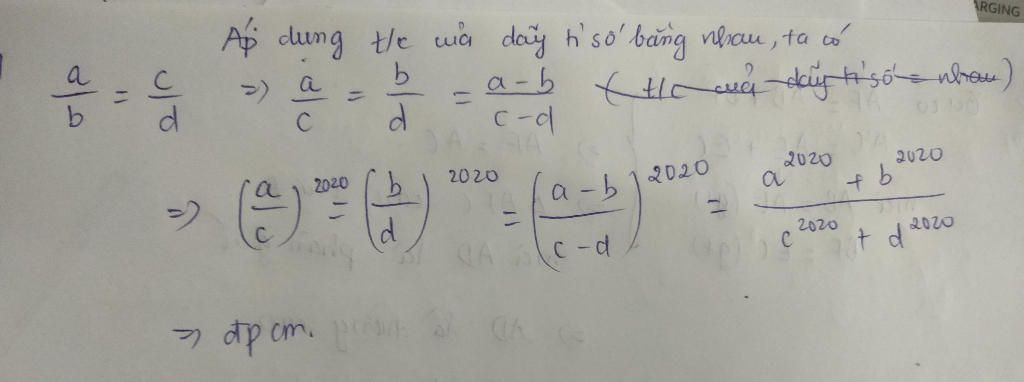 ARGING
Áp dụng t/c của dãy tỉ số bằng nhau, ta có
a/b = c/d => a/c = b/d = (a-b)/(c-d) (t/c của dãy tỉ số = nhau)
=> (a/c)^2020 = (b/d)^2020 = ((a-b)/(c-d))^2020 = (a^2020 + b^2020)/(c^2020 + d^2020)
=> đpcm.